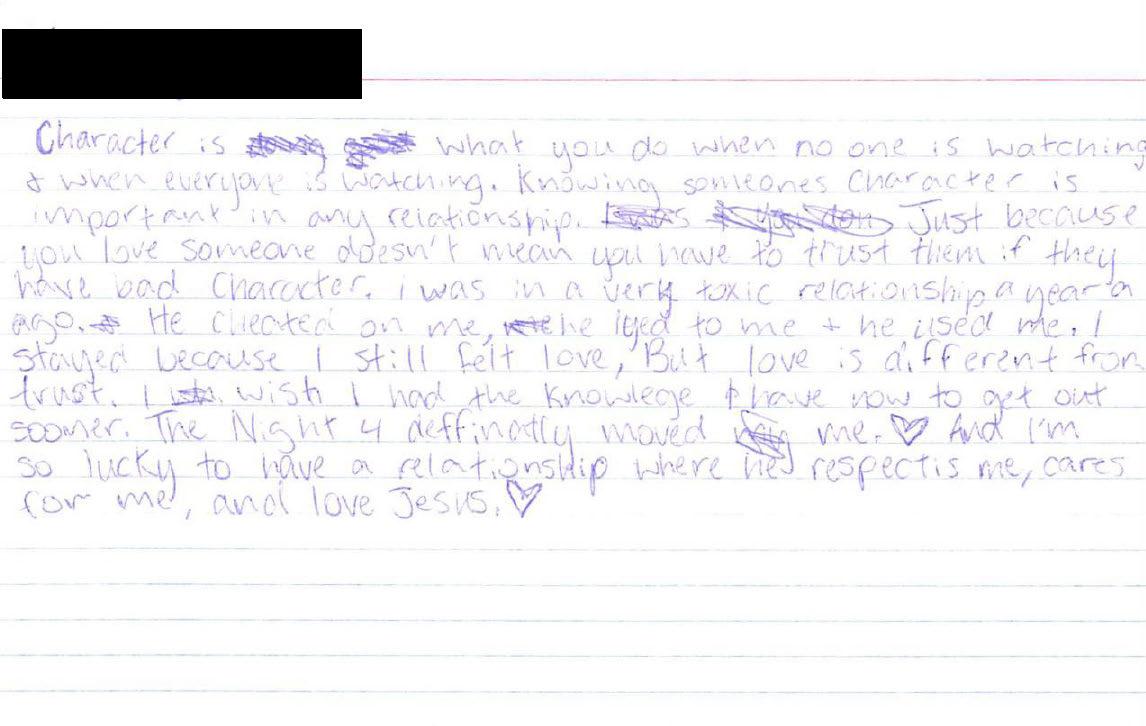 Character is what you do when no one is watching
& when everyone is watching. Knowing someones Character is
important in any relationship. Just because
you love someone doesn't mean you have to trust them if they
have bad Character. i was in a very toxic relationship a year a
ago. He cheated on me, he lyed to me + he used me. I
stayed because I still felt love, But love is different from
trust. I wish I had the knowlege I have now to get out
soomer. The Night 4 deffinatly moved me. ♡ And I'm
so lucky to have a relationship where he respectis me, cares
for me, and love Jesus. ♡